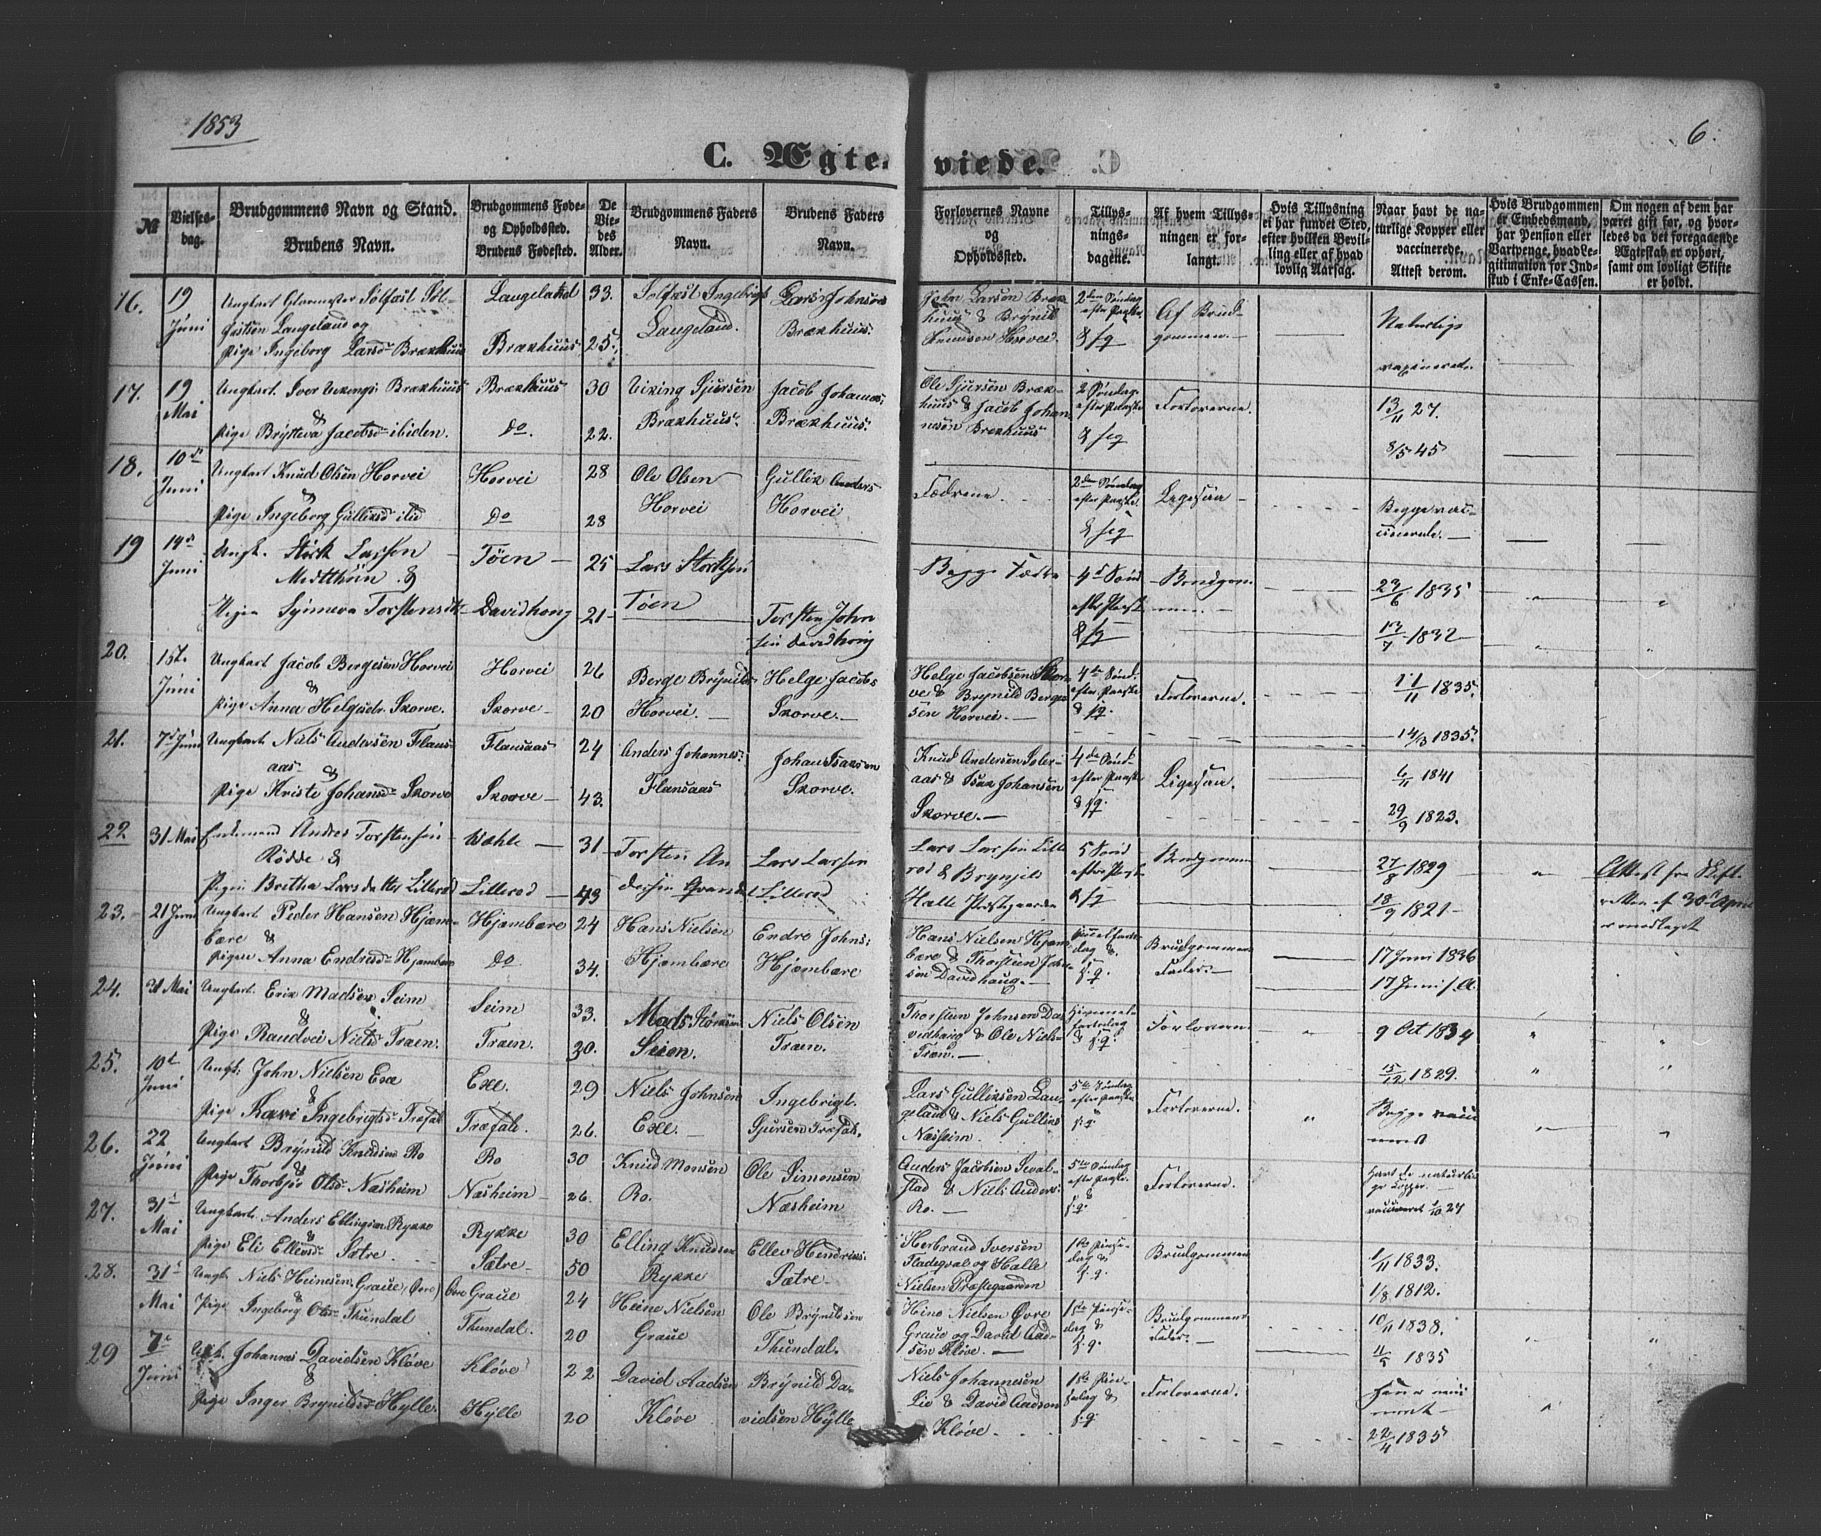 1853
6.
C. Ægteviede.
№
Vielsesdag.
Brudgommens Navn og Stand.
Brudens Navn.
Brudgommens Føde- og Opholdssted.
Brudens Fødested.
De Viedes Alder.
Brudgommens Faders Navn.
Brudens Faders Navn.
Forlovernes Navne og Opholdssted.
Tillysningsdagene.
Af hvem Tillysningen er forlangt.
Hvis Tillysning ei har fundet Sted, efter hvilken Bevilling eller af hvad lovlig Aarsag.
Naar havt de naturlige Kopper eller vaccinerede. Attest derom.
Hvis Brudgommen er Embedsmand, har Pension eller Vartpenge, hvad Legitimation for Indstud i Enke-Cassen.
Om nogen af dem har været gift før, og hvorledes da det foregaaende Ægteskab er ophørt, samt om lovligt Skifte er holdt.
16. 19 Juni
Langeland og
Pige Ingeborg Larsd. Brækhuus
Langeland 33.
Brækhuus 25.
Langeland.
Lars Johnsen
Brækhuus.
John Larsen Brækhuus & Brynild
Knudsen Horvei
2den Søndag efter Paaske & fg
Af Brudgommen.
Naturlige
vaxinerede.
17. 19 Mai
Ungkarl. Iver Vikings. Brækhuus
&
Pige Brytteva Jacobsd. ibiden.
Brækhuus 30
Do. 22.
Viking Sjursen
Brækhuus.
Jacob Johannes
Brækhuus.
Ole Sjursen Brækhuus & Jacob Johannesøn Brækhuus
2 Søndag efter Paaske & feg
Forloverne.
13/11 27.
8/5 45
18. 10de Juni
Ungkarl Knud Olsen Horvei
&
Pige Ingeborg Gulliksd ibid
Horvei 28
Do 28
Ole Olsen
Horvei
Gullik Anders
Horvei
Fædrene.
2den Søndag efter Paaske & feg
Ligesaa
Begge vaccinerede.
19 14de Juni
Ungk. Størk Larsen
Midtthun &
Pigen Synneva Torstensdtr
Tøen 25
Davidhoug 21
Lars Størksen
Tøen
Torsten Johnsen Davidhoug
Begge Fædre
4d Sønd efter Paask & fg
23/6 1835
13/7 1832
20. 15te Juni
Ungkarl Jacob Bergesen Horvei
&
Pige Anna Helgedr. Skorve.
Horvei 26
Skorve 20
Berge Brynilds
Horvei.
Helge Jacobs
Skorve.
Helge Jacobsen Skorve & Brynild Bergesen Horvei.
4de Sønd efter Paaske & fg.
Forloverne.
11/11 1835.
14/3 1835.
21. 7d Juni
Ungkarl Niels Andersen Flansaas &
Pige Kristi Johansd. Skorve
Flansaas 24
Skorve 43.
Anders Johannes:
Flansaas
Johan Isaksen
Skorve.
Knud Andersen & Isak Johansen
Skorve.
4de Sønd efter Paaske & fg.
Ligesaa
6/11 1841
29/9 1823.
22 31 Mai
Enkemand Andres Torstensen
Rødde &
Pigen Bretha Larsdatter Lillerød
31
Lillerød 43
Torsten Andersen
Lars Larsen
Lillerød
Lars Larsen Lillerød & Brynjel
Halle Præstgaarden
5 Sønd efter Paaske & fg
Brudgommen
27/8 1829
18/9 1821
Attest fra Skifteretten af 30d April
er modtaget
23. 21 Juni
Ungkarl Peder Hansen Hjembære &
Pigen Anna Endresd. Hjembære
Hjembære 24
Do 34.
Hans Nielsen
Hjembære
Endre Johns:
Hjembære
Hans Nielsen Hjembære & Thorstein Johnsen Davidhaug.
Brudgommens
Fader.
17 Juni 1836
17 Juni s. A.
24. 31 Mai
Ungkarl. Erik Madsen Seim
&
Pige Randvei Nielsd. Træn.
Seim 33.
Træn. 30.
Mads
Seim.
Niels Olsen
Træn.
Thorstein Johnsen Davidhaug & Ole Niels-
Træn.
Forloverne
9 Oct 1834
15/12 1829.
25. 10d Juni
Ungk. John Nielsen Exe
&
Pige Kari Ingebrigtsd. Træfald
Exe. 29
Træfald. 26.
Niels Johnsen
Exe.
Ingebrigt
Sjursen Træfald.
Lars Gulliksen Langeland & Niels Gulliks
Næsheim.
5te Søndag efter Paaske f.g.
Forloverne.
Begge vaccineret
26. 22 Juni
Ungkarl Brynild Knudsen Ro
&
Pige Thorbjør Olsd. Næsheim
Ro 30
Næsheim 26.
Knud Monsen
Ro.
Ole Simonsen
Næsheim
Anders Jacobsen & Niels Anders:
Ro.
5te Søndag efter Paaske. f.g.
Forloverne.
Havt de naturlige Kopper.
27. 31t Mai
Ungkarl. Anders Ellingsen Rykke
&
Pige Eli Ellevsd. Sætre.
Rykke 30
Sætre 50
Elling Knudsen
Rykke
Ellev Hendriks.
Sætre
Herbrand Iversen
og Halle
Nielsen Præstegaarden
1ste Pinsedag & f.g.
Brudgommen
1/11 1833.
1/8 1812.
28. 31t Mai
Ungk. Niels Heinesen Graue (Øvre)
&
Pige Ingeborg Olsd. Thundal
Øvre Graue 24
Thundal. 20
Heine Nielsen
Graue
Ole Brynildsen
Thundal.
Heine Nielsen Øvre
Graue og David Aadsen Kløve.
1ste Pinsedag & f.g.
Brudgommens
Fader.
10/11 1838.
11/5 1835
29 7d Juni
Ungk. Johannes Davidsen Kløve
&
Pige Inger Brynildsd Hylle.
Kløve 22
Hylle 20
David Aadsen
Kløve
Brynild Davidsen Hylle
Niels Johannesen
Lie & David Aadsen
Kløve
1ste Pinsedag & f.g.
Forloverne.
22/4 1835